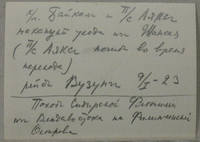 к/л. Байкал и п/с Аякс
накануне ухода из Шанхая
(п/с Аякс погиб во время
перехода)
рейд Вузунг 9/I-23
Поход Сибирской Флотилии
из Владивостока на Филиппинские
Острова